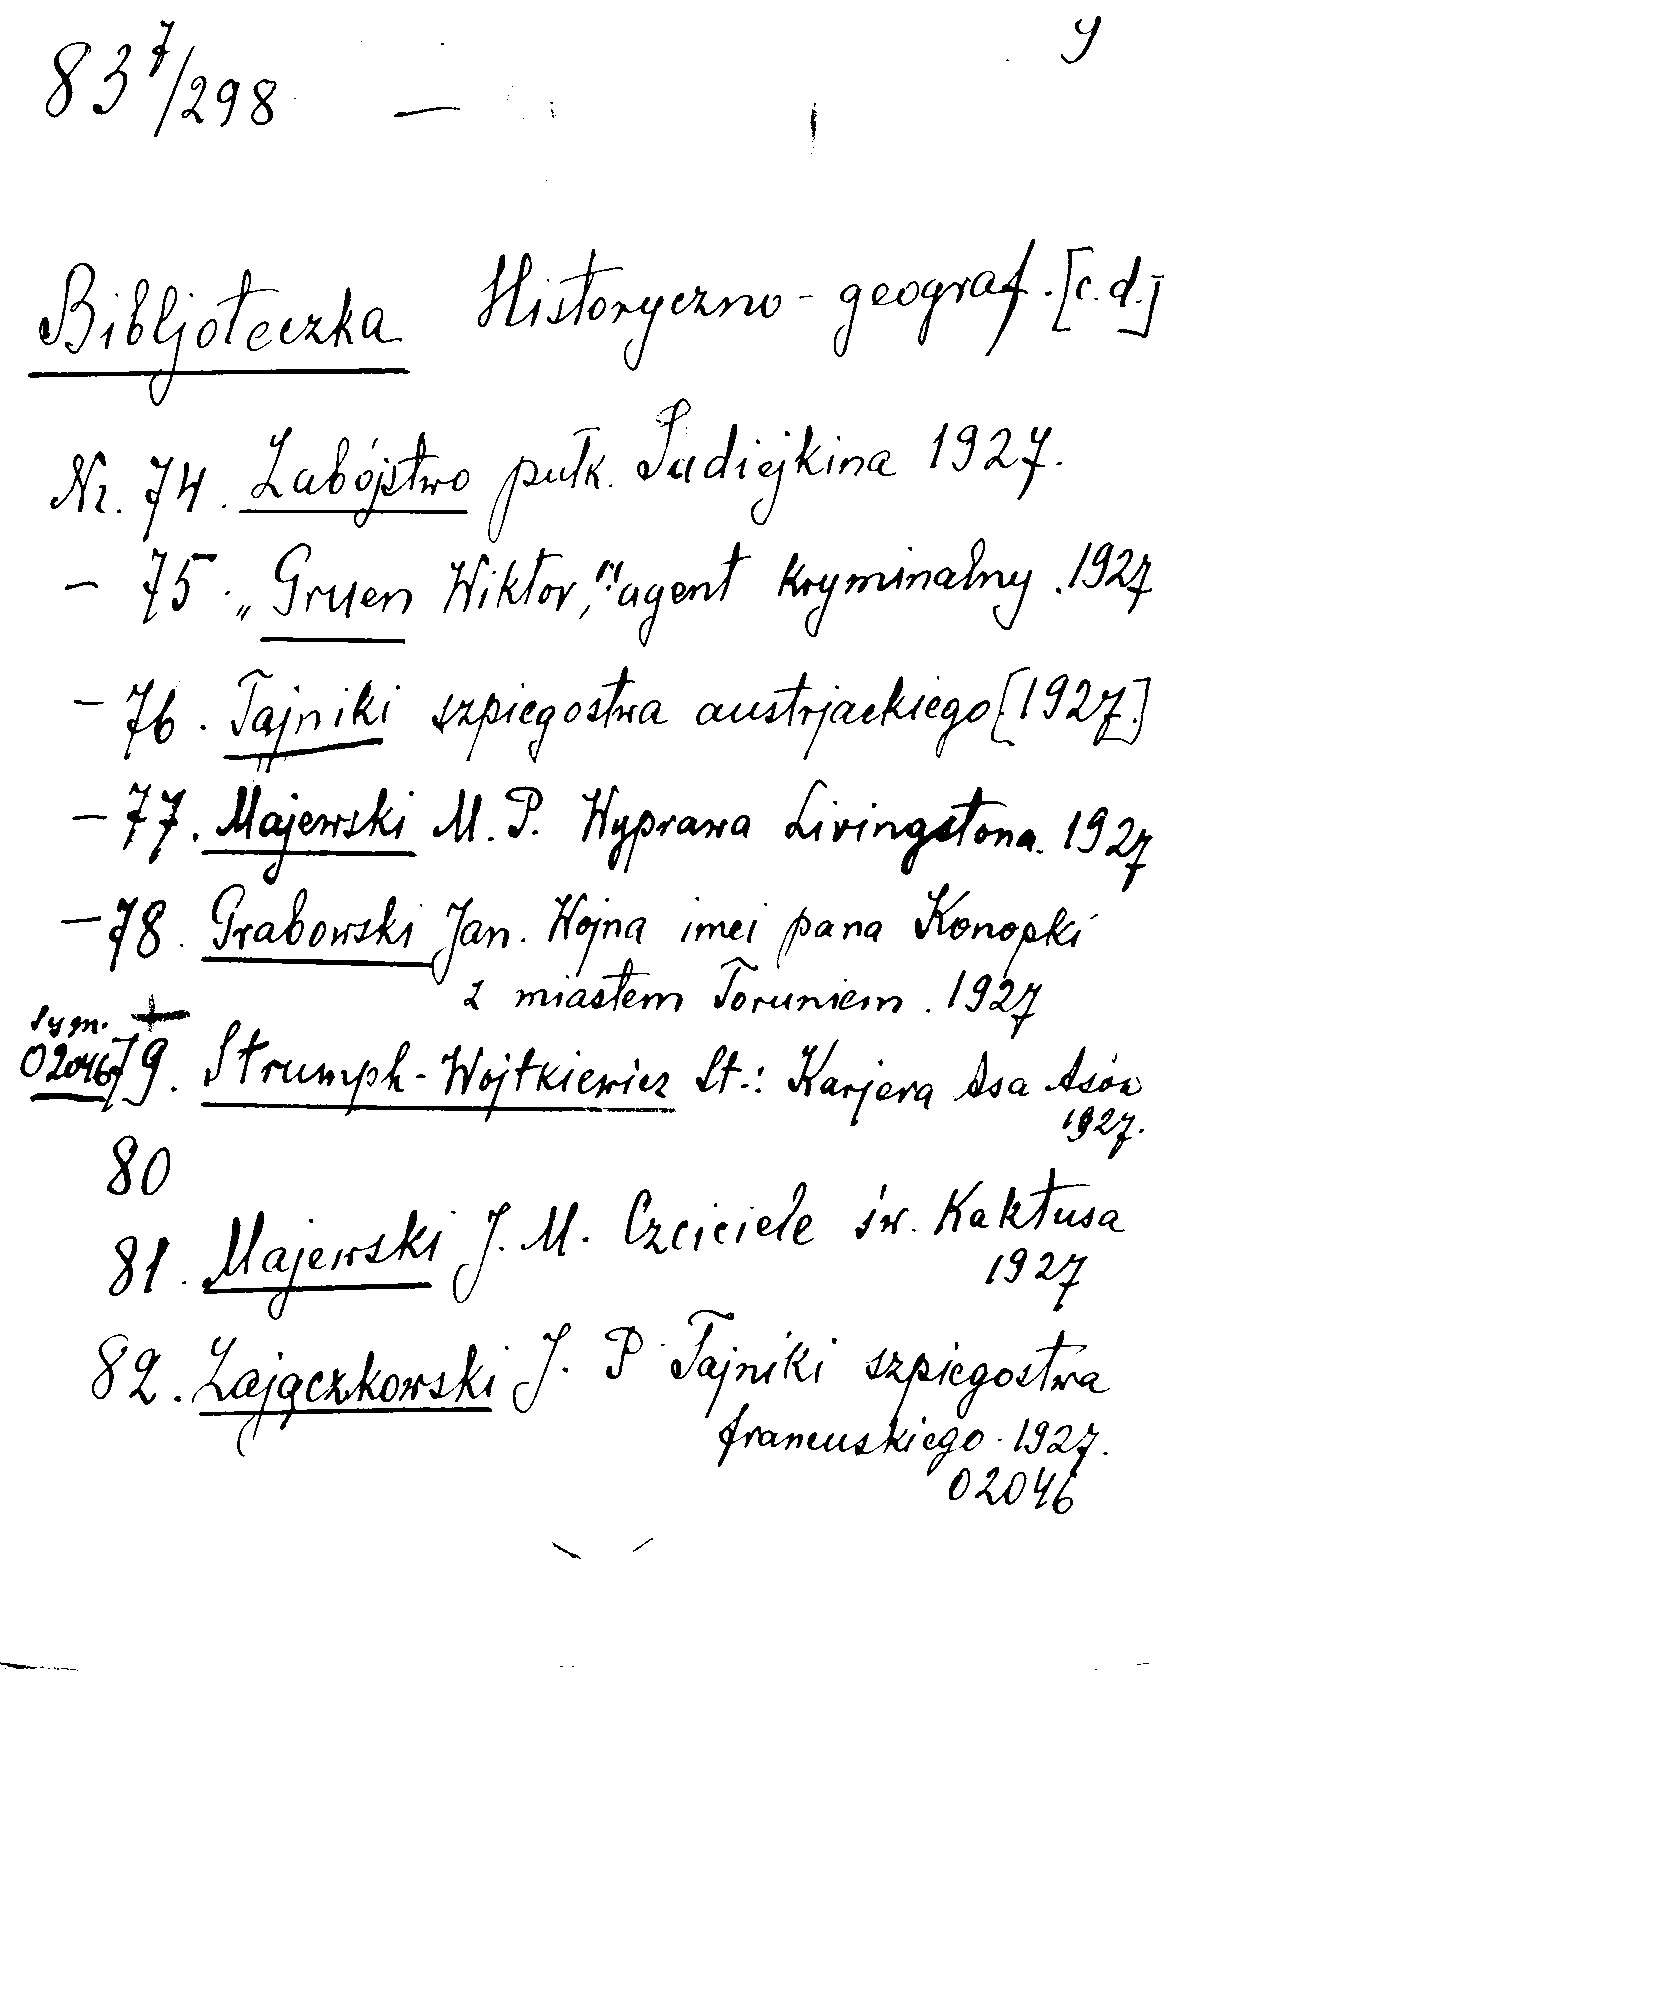 83⁷/298 — y
Bibljoteczka Historyczno-geograf. [c.d.]
Nr. 74. Zabójstwo pułk. Sudiejkina 1927.
— 75. „Gruen Wiktor," agent kryminalny. 1927
— 76. Tajniki szpiegostwa austrjackiego [1927.]
— 77. Majewski M. P. Wyprawa Livingstona. 1927
— 78. Grabowski Jan. Wojna imci pana Konopki
z miastem Toruniem. 1927
Sygn. +
02046 79. Strumph-Wojtkiewicz St.: Karjera Asa Asów
1927.
80
81. Majewski J. M. Czciciele św. Kaktusa
1927
82. Zajączkowski J. P Tajniki szpiegostwa
francuskiego. 1927.
02046